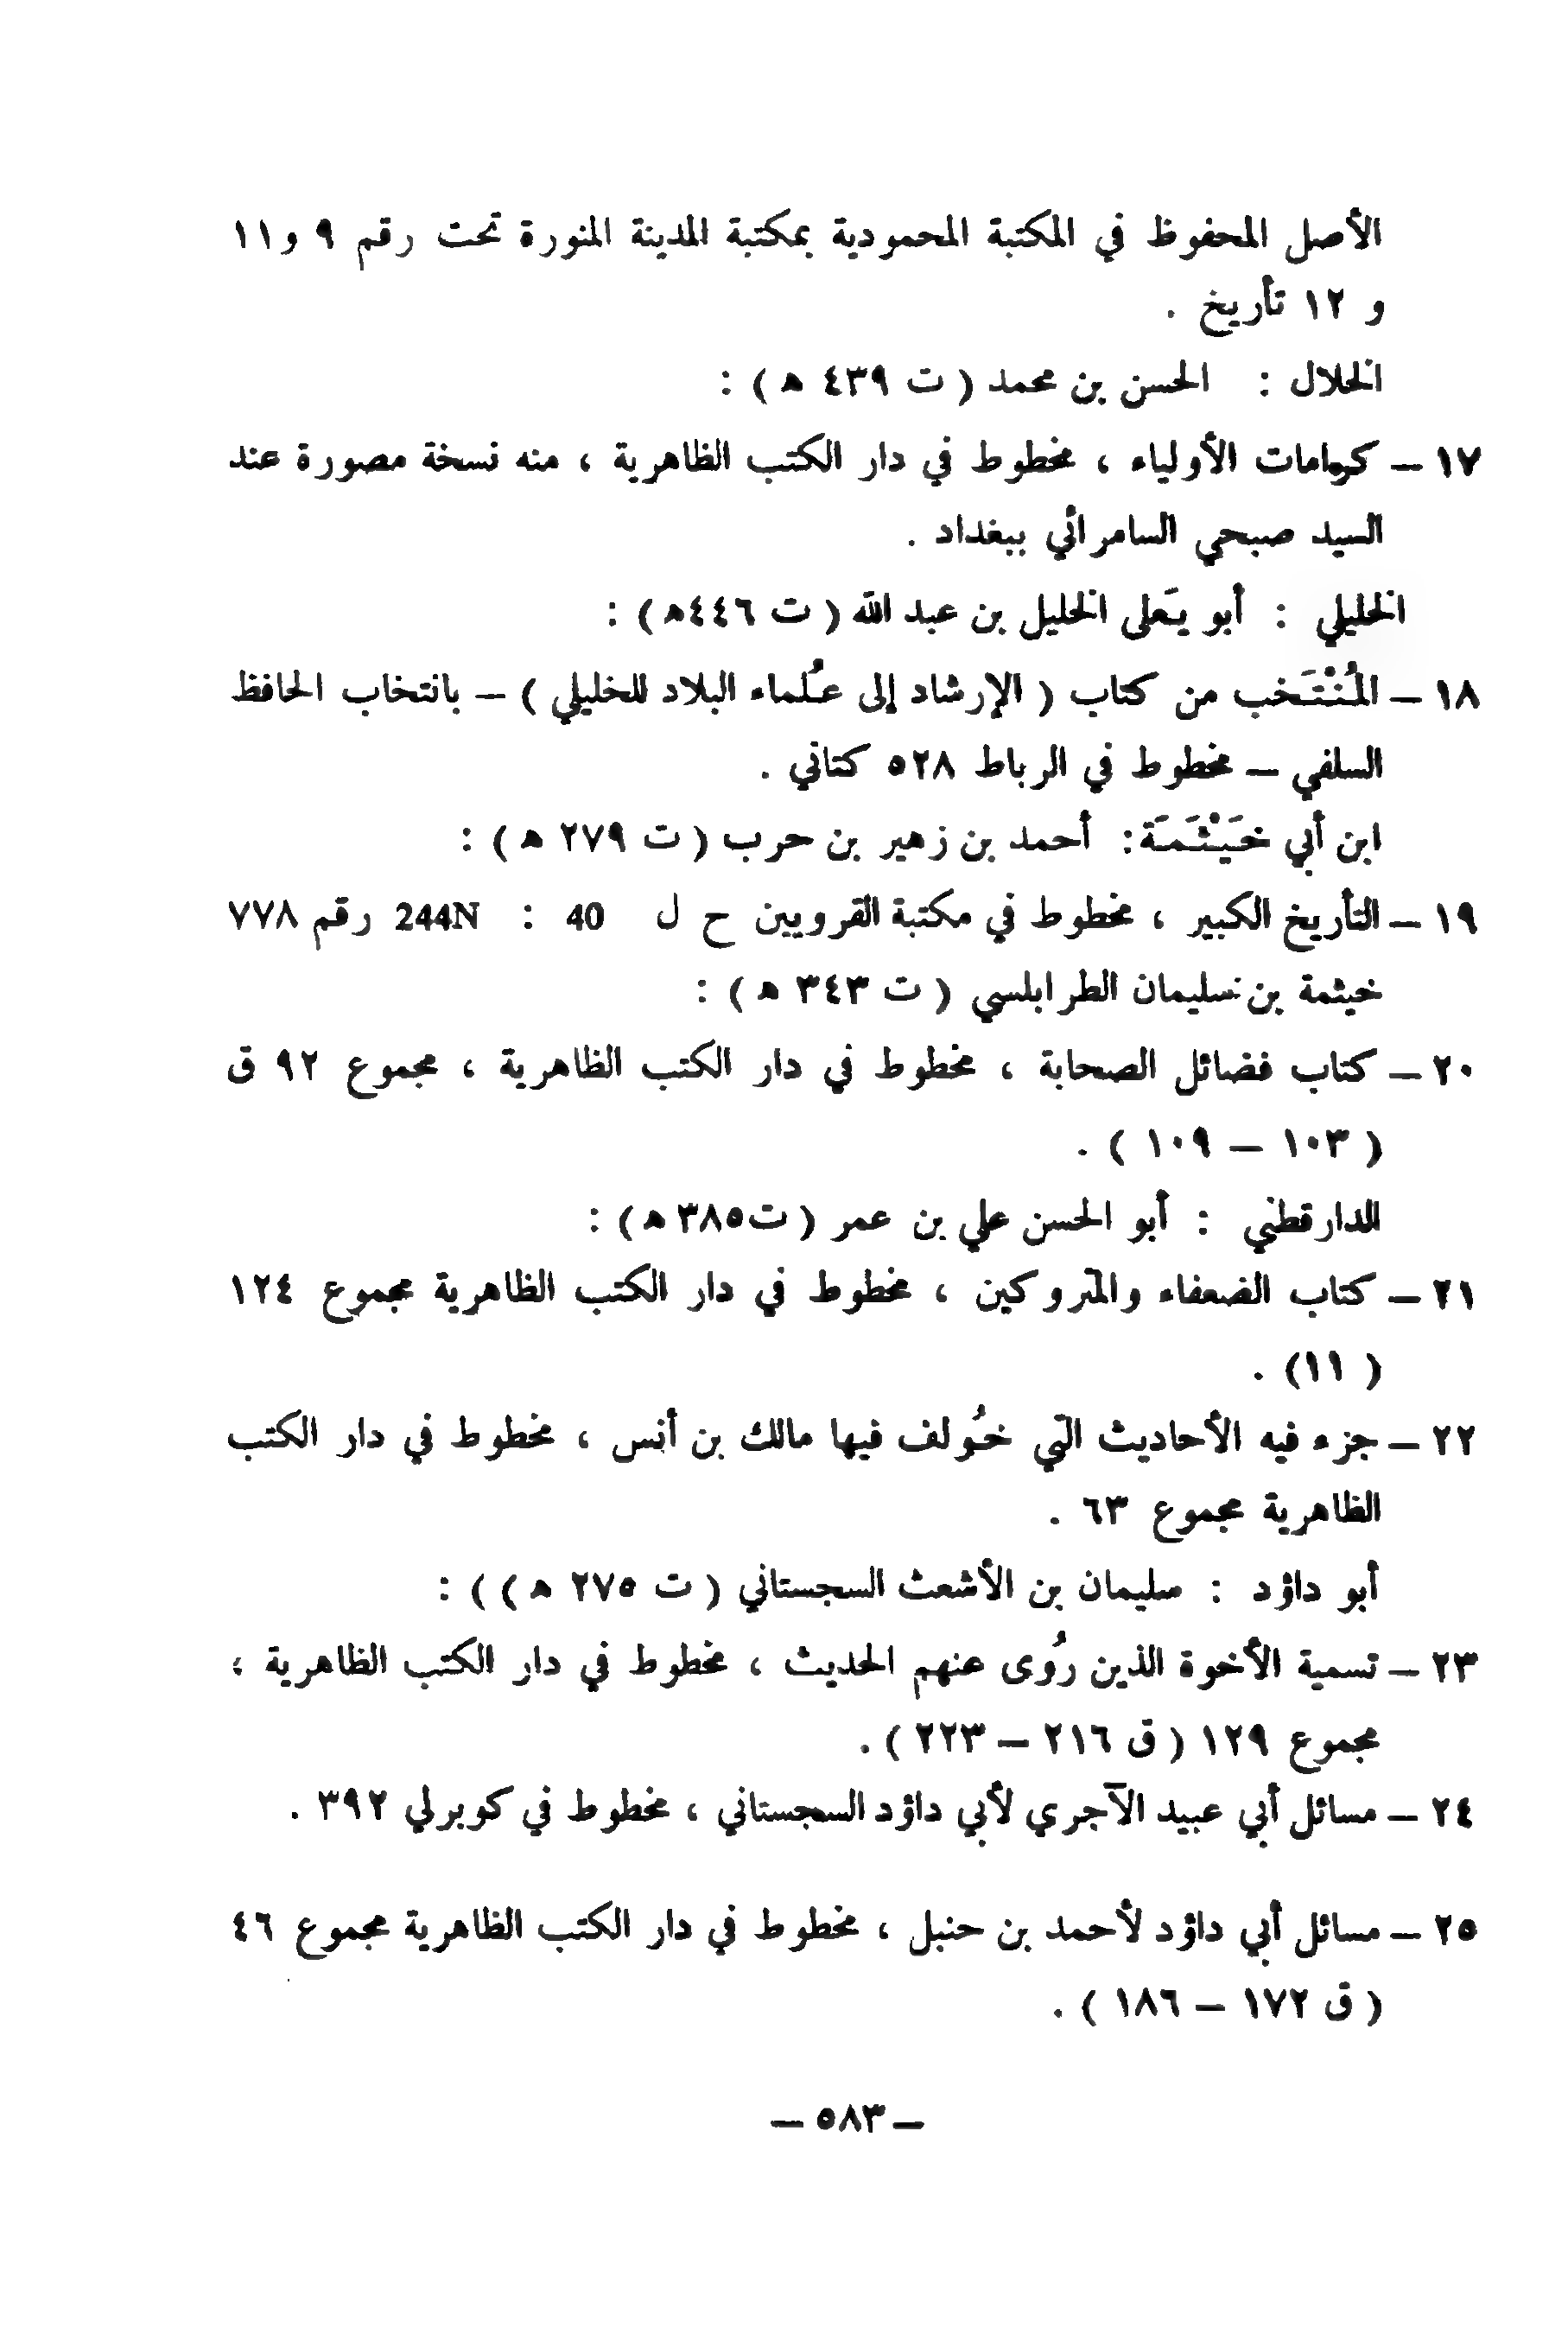 الأصل المحفوظ في المكتبة المحمودية بمكتبة المدينة المنورة تحت رقم ٩ و١١
و ١٢ تأريخ .
الخلال : الحسن بن محمد ( ت ٤٣٩ ه ) :
١٧ – كرامات الأولياء ، مخطوط في دار الكتب الظاهرية ، منه نسخة مصورة عند
السيد صبحي السامرائي ببغداد .
الخليلي : أبو يَعلى الخليل بن عبد الله ( ت ٤٤٦ه ) :
١٨ – المُنْتَخب من كتاب ( الإرشاد إلى عُلماء البلاد للخليلي ) – بانتخاب الحافظ
السلفي – مخطوط في الرباط ٥٢٨ كتاني .
ابن أبي خَيْثَمَة : أحمد بن زهير بن حرب ( ت ٢٧٩ ه ) :
١٩ – التأريخ الكبير ، مخطوط في مكتبة القرويين ح ل 40 : 244N رقم ٧٧٨
خيثمة بن سليمان الطرابلسي ( ت ٣٤٣ ه ) :
٢٠ – كتاب فضائل الصحابة ، مخطوط في دار الكتب الظاهرية ، مجموع ٩٢ ق
( ١٠٣ – ١٠٩ ) .
الدارقطني : أبو الحسن علي بن عمر ( ت٣٨٥ ه ) :
٢١ – كتاب الضعفاء والمتروكين ، مخطوط في دار الكتب الظاهرية مجموع ١٢٤
( ١١) .
٢٢ – جزء فيه الأحاديث التي خُولف فيها مالك بن أنس ، مخطوط في دار الكتب
الظاهرية مجموع ٦٣ .
أبو داؤد : سليمان بن الأشعث السجستاني ( ت ٢٧٥ ه ) ) :
٢٣ – تسمية الأخوة الذين رُوى عنهم الحديث ، مخطوط في دار الكتب الظاهرية ،
مجموع ١٢٩ ( ق ٢١٦ – ٢٢٣ ) .
٢٤ – مسائل أبي عبيد الآجري لأبي داؤد السجستاني ، مخطوط في كوبرلي ٣٩٢ .
٢٥ – مسائل أبي داؤد لأحمد بن حنبل ، مخطوط في دار الكتب الظاهرية مجموع ٤٦
( ق ١٧٢ – ١٨٦ ) .
– ٥٨٣ –